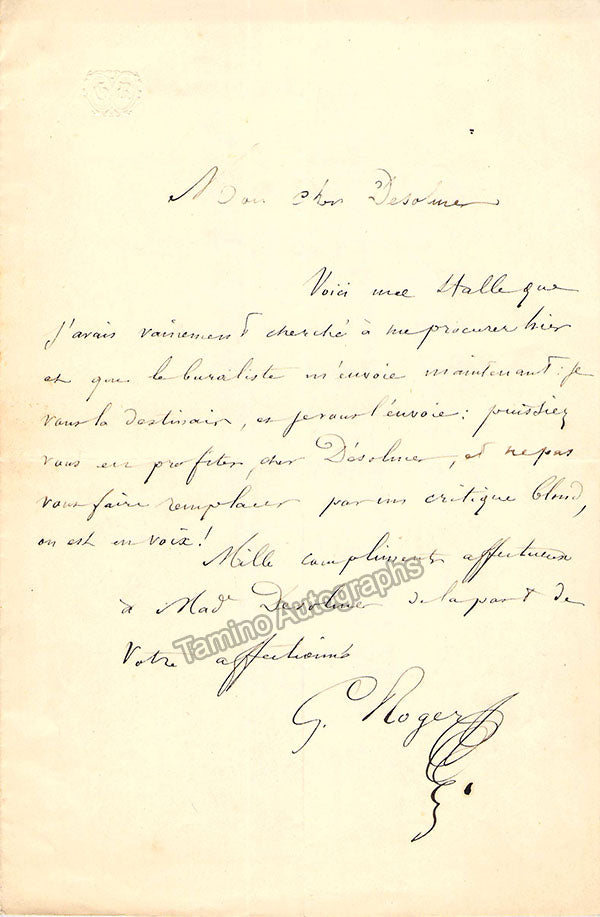 Mon cher Desolmer
Voici une stalle que
j'avais vainement cherché à me procurer hier
et que le buraliste m'envoie maintenant : je
vous la destinais, et je vous l'envoie : puissiez
vous en profiter, cher Désolmer, et ne pas
vous faire remplacer par un critique blond,
on est en voix !
Mille compliments affectueux
à Made Desolmer de la part de
Votre affectionné
G. Roger
Tamino Autographs